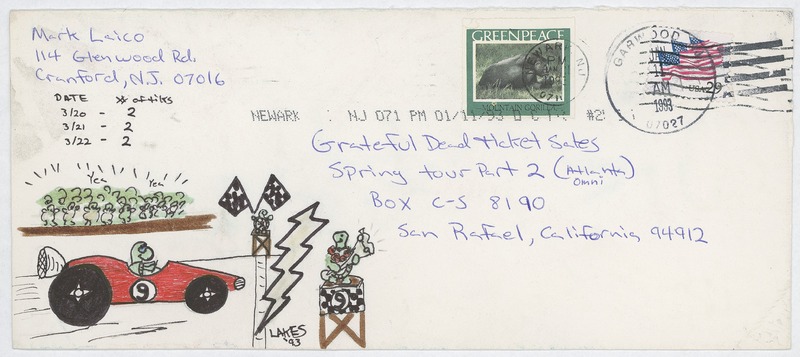 Mark Laico
114 Glenwood Rd.
Cranford, N.J. 07016
DATE # of tiks
3/20 - 2
3/21 - 2
3/22 - 2
GREENPEACE
MOUNTAIN GORILLA
NEWARK NJ
PM
GARWOOD
11
AM
1993
07027
USA 29
NEWARK NJ 071 PM 01/11/93
Grateful Dead Ticket Sales
Spring tour Part 2 (Atlanta Omni)
Box C-S 8190
San Rafael, California 94912
Yea Yea
9
9
LAKES
'93